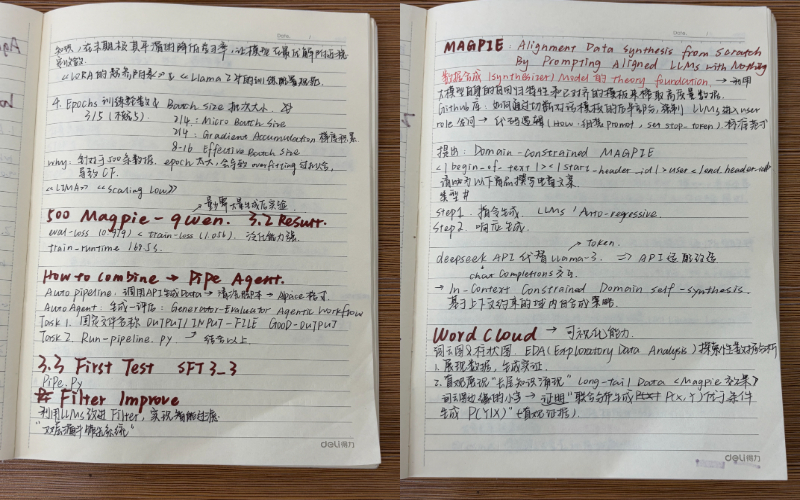 知识，在末期极其平滑的降低学习率，让模型在最优解附近稳
定收敛。
《LORA的》&《Llama 2的训练》
4. Epochs 训练轮数 & Batch size 批次大小
3/5 2/4 : Micro Batch Size
2/4 : Gradient Accumulation 梯度积累
8-16 Effective Batch Size
why: 针对于500条数据, epoch太大, 会导致 overfitting 过拟合,
导致CF.
《LIMA》 《scaling law》
500 Magpie-qwen. 3.2 Result.
eval-loss (0.959) < train-loss (1.056). 泛化能力强.
train-runtime 167.53.
How to combine → Pipe Agent.
Auto pipeline. 调用API生成Data → 清洗脚本 → alpaca格式.
Auto Agent: 生成-评估: Generator-Evaluator Agentic Workflow
Task 1. 固定文件名称 OUTPUT/INPUT-FILE GOOD-OUTPUT
Task 2. Run-pipeline.py → 结合以上
3.3 First Test SFT3_3
Pipe.Py
Filter Improve
利用LLMs改进Filter, 实现智能过滤
deli得力
MAGPIE. Alignment Data Synthesis from Scratch
By Prompting Aligned LLMs with Nothing
数据合成 (Synthesizer) Model 的 Theory foundation. → 利用
大模型自身的自回归特性和已对齐的模板来榨取高质量数据.
Github库: 如何通过切断对话模板的后半部分, 强制 LLMs 进入user
role 空间 → 代码逻辑 (How: 拼接 prompt, set stop_token)
提出: Domain-Constrained MAGPIE
<|begin-of-text|><|start-header-id|>user<|end-header-id|>
请为以下商品撰写电商文案.
类型:#
step1. 指令生成. LLMs 'Auto-regressive.
step2. 响应生成.
token
deepseek API 代替 llama-3. ⇒ API
chat Completions
→ In-Context Constrained Domain self-synthesis.
基于上下文约束的域内自合成策略.
Word Cloud → 可视化能力.
词云图 & 柱状图. EDA (Exploratory Data Analysis) 探索性数据分析
1. 展现数据, 生成实证.
2. 直观展现“长尾知识涌现” Long-tail Data <Magpie 》
词云图边缘的小字 → 证明“联合分布生成 P(X,Y) 优于条件
生成 P(Y|X)” (直观证据).
deli得力